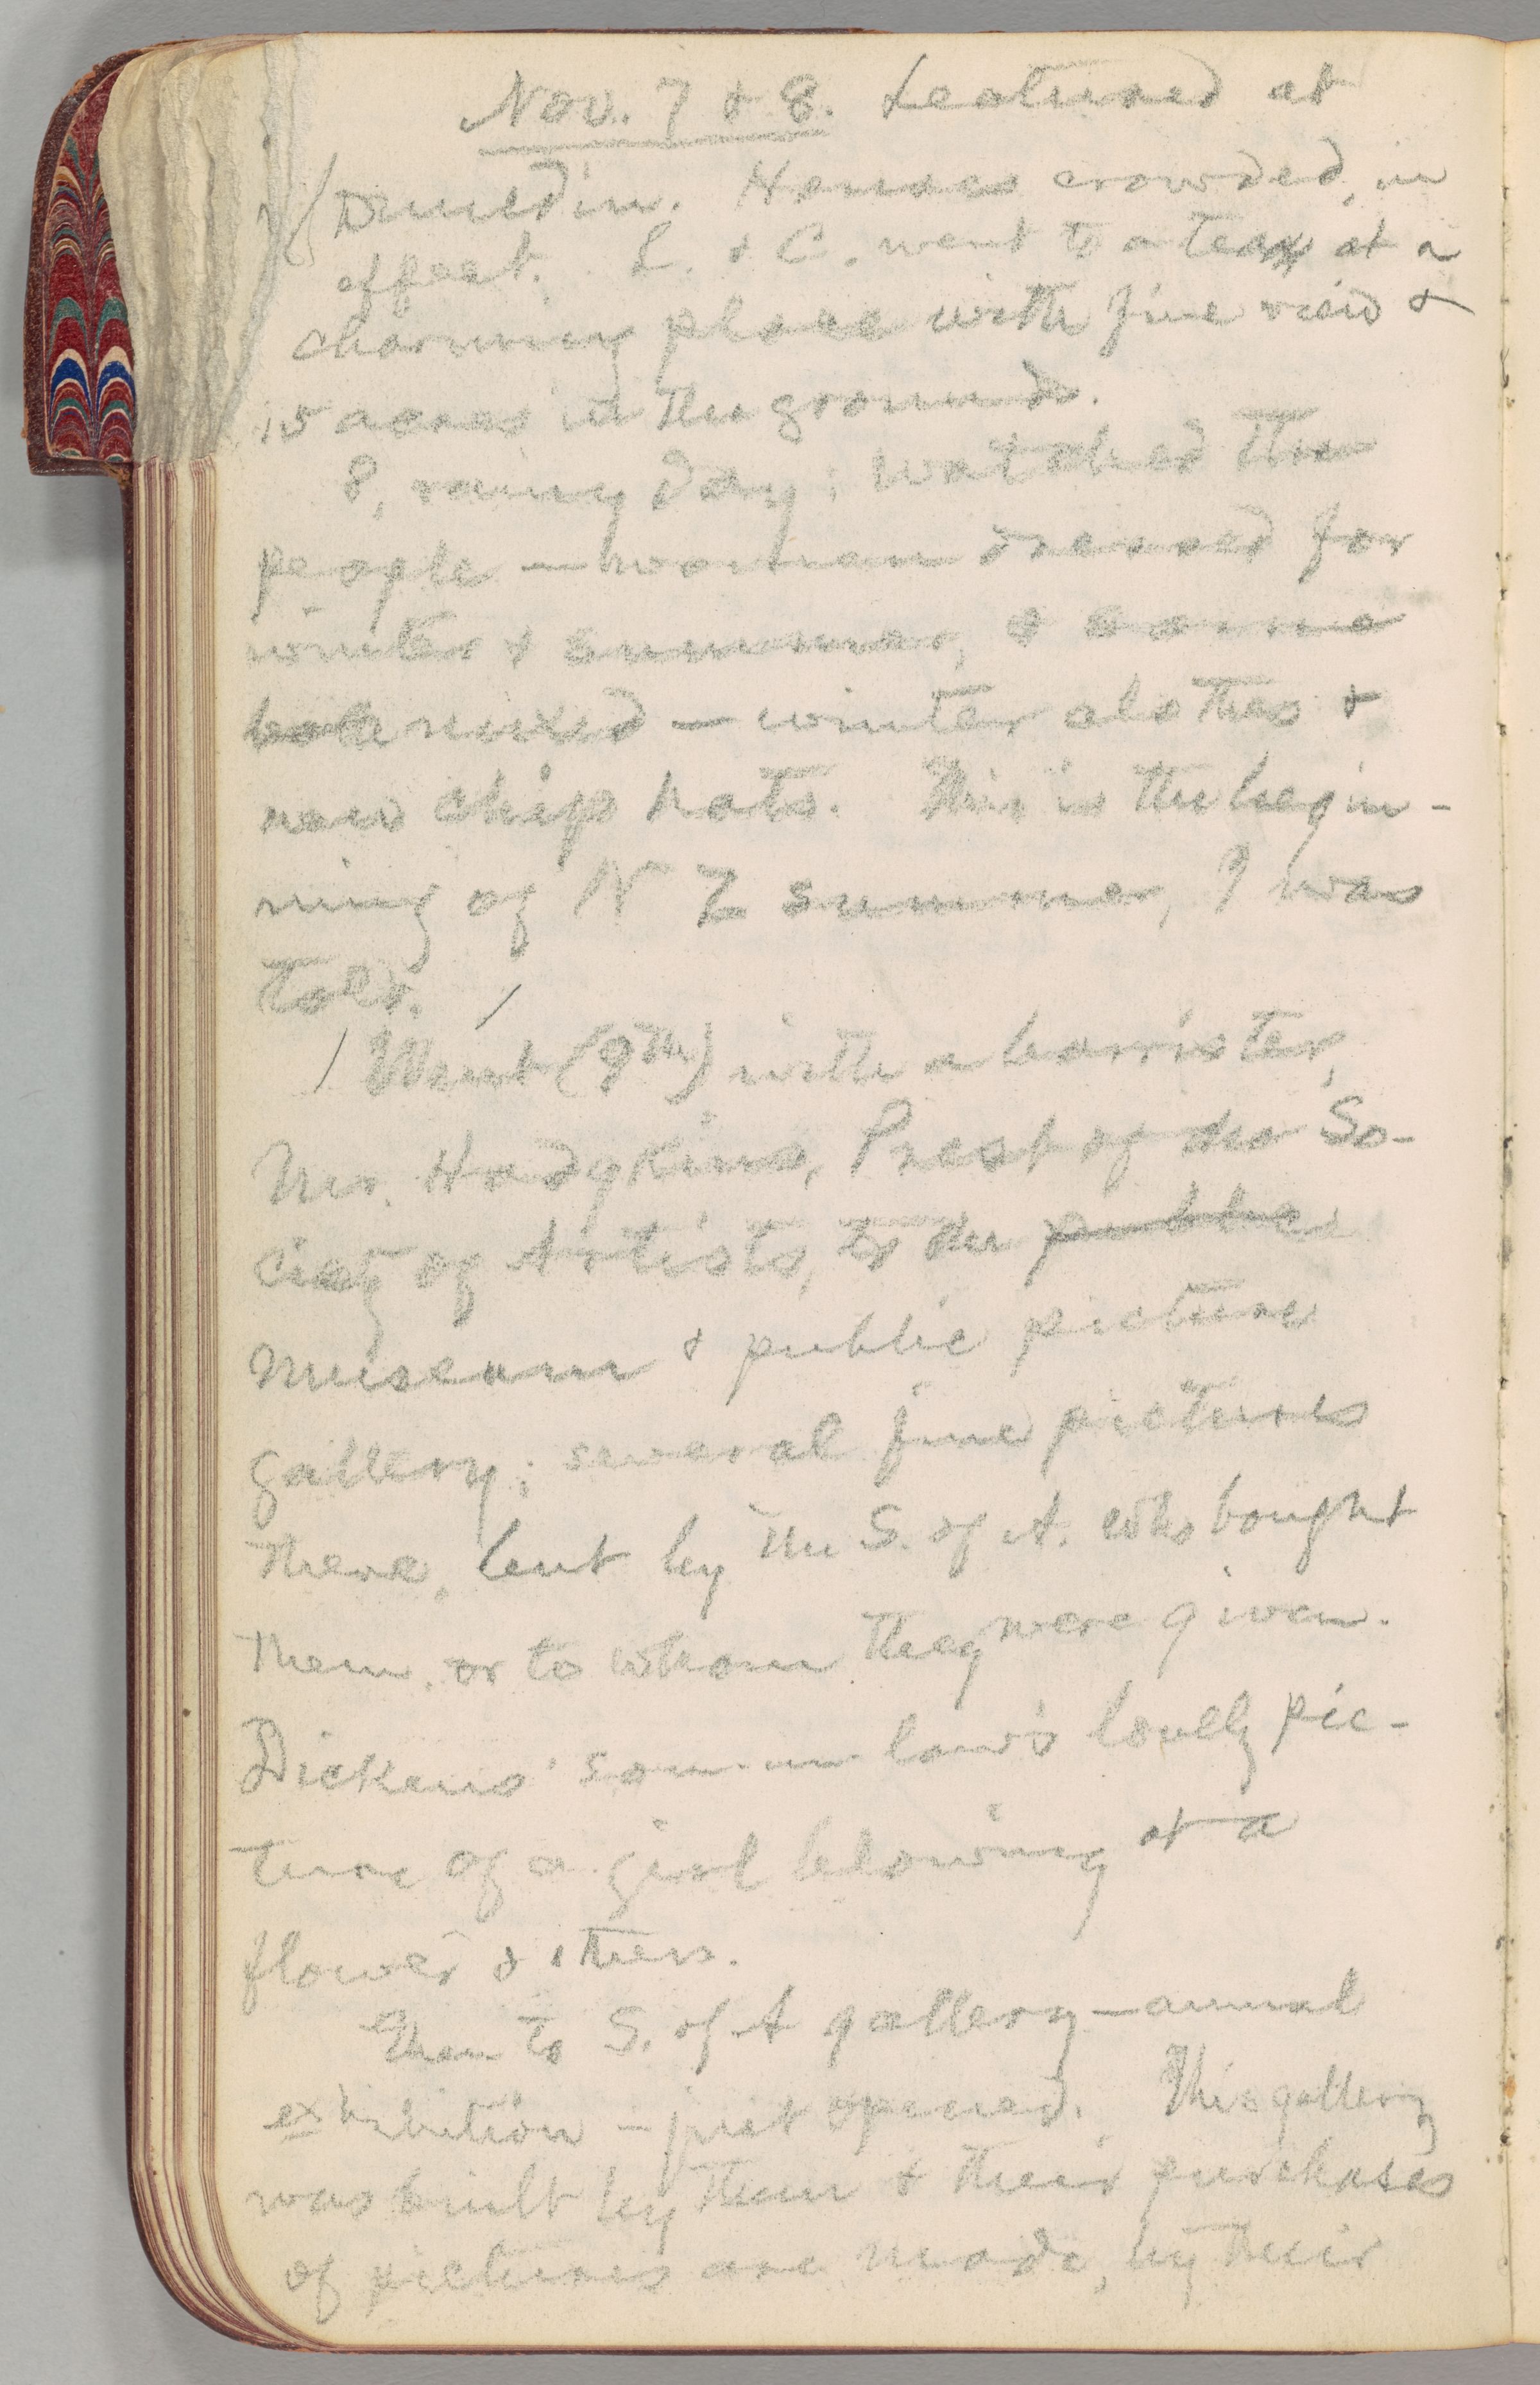 Nov. 7 & 8. Lectured at
Dunedin. Houses crowded, in
effect. L. & C. went to a tea at a
charming place with fine view &
15 acres in the grounds.
8, rainy day; watched the
people — women dressed for
winter & summer, & some
both mixed — winter clothes &
new chip hats. This is the begin-
ning of N Z summer, I was
told.
Went (9th) with a barrister,
Mr. Hodgkins, Prest of the So-
ciety of Artists, to the public
museum & public picture
gallery; several fine pictures
there, lent by the S. of A. who bought
them, or to whom they were given.
Dickens' son-in-law's lovely pic-
ture of a girl blowing at a
flower & others.
Then to S. of A gallery — annual
exhibition — just opened. This gallery
was built by them & their purchases
of pictures are made, by their